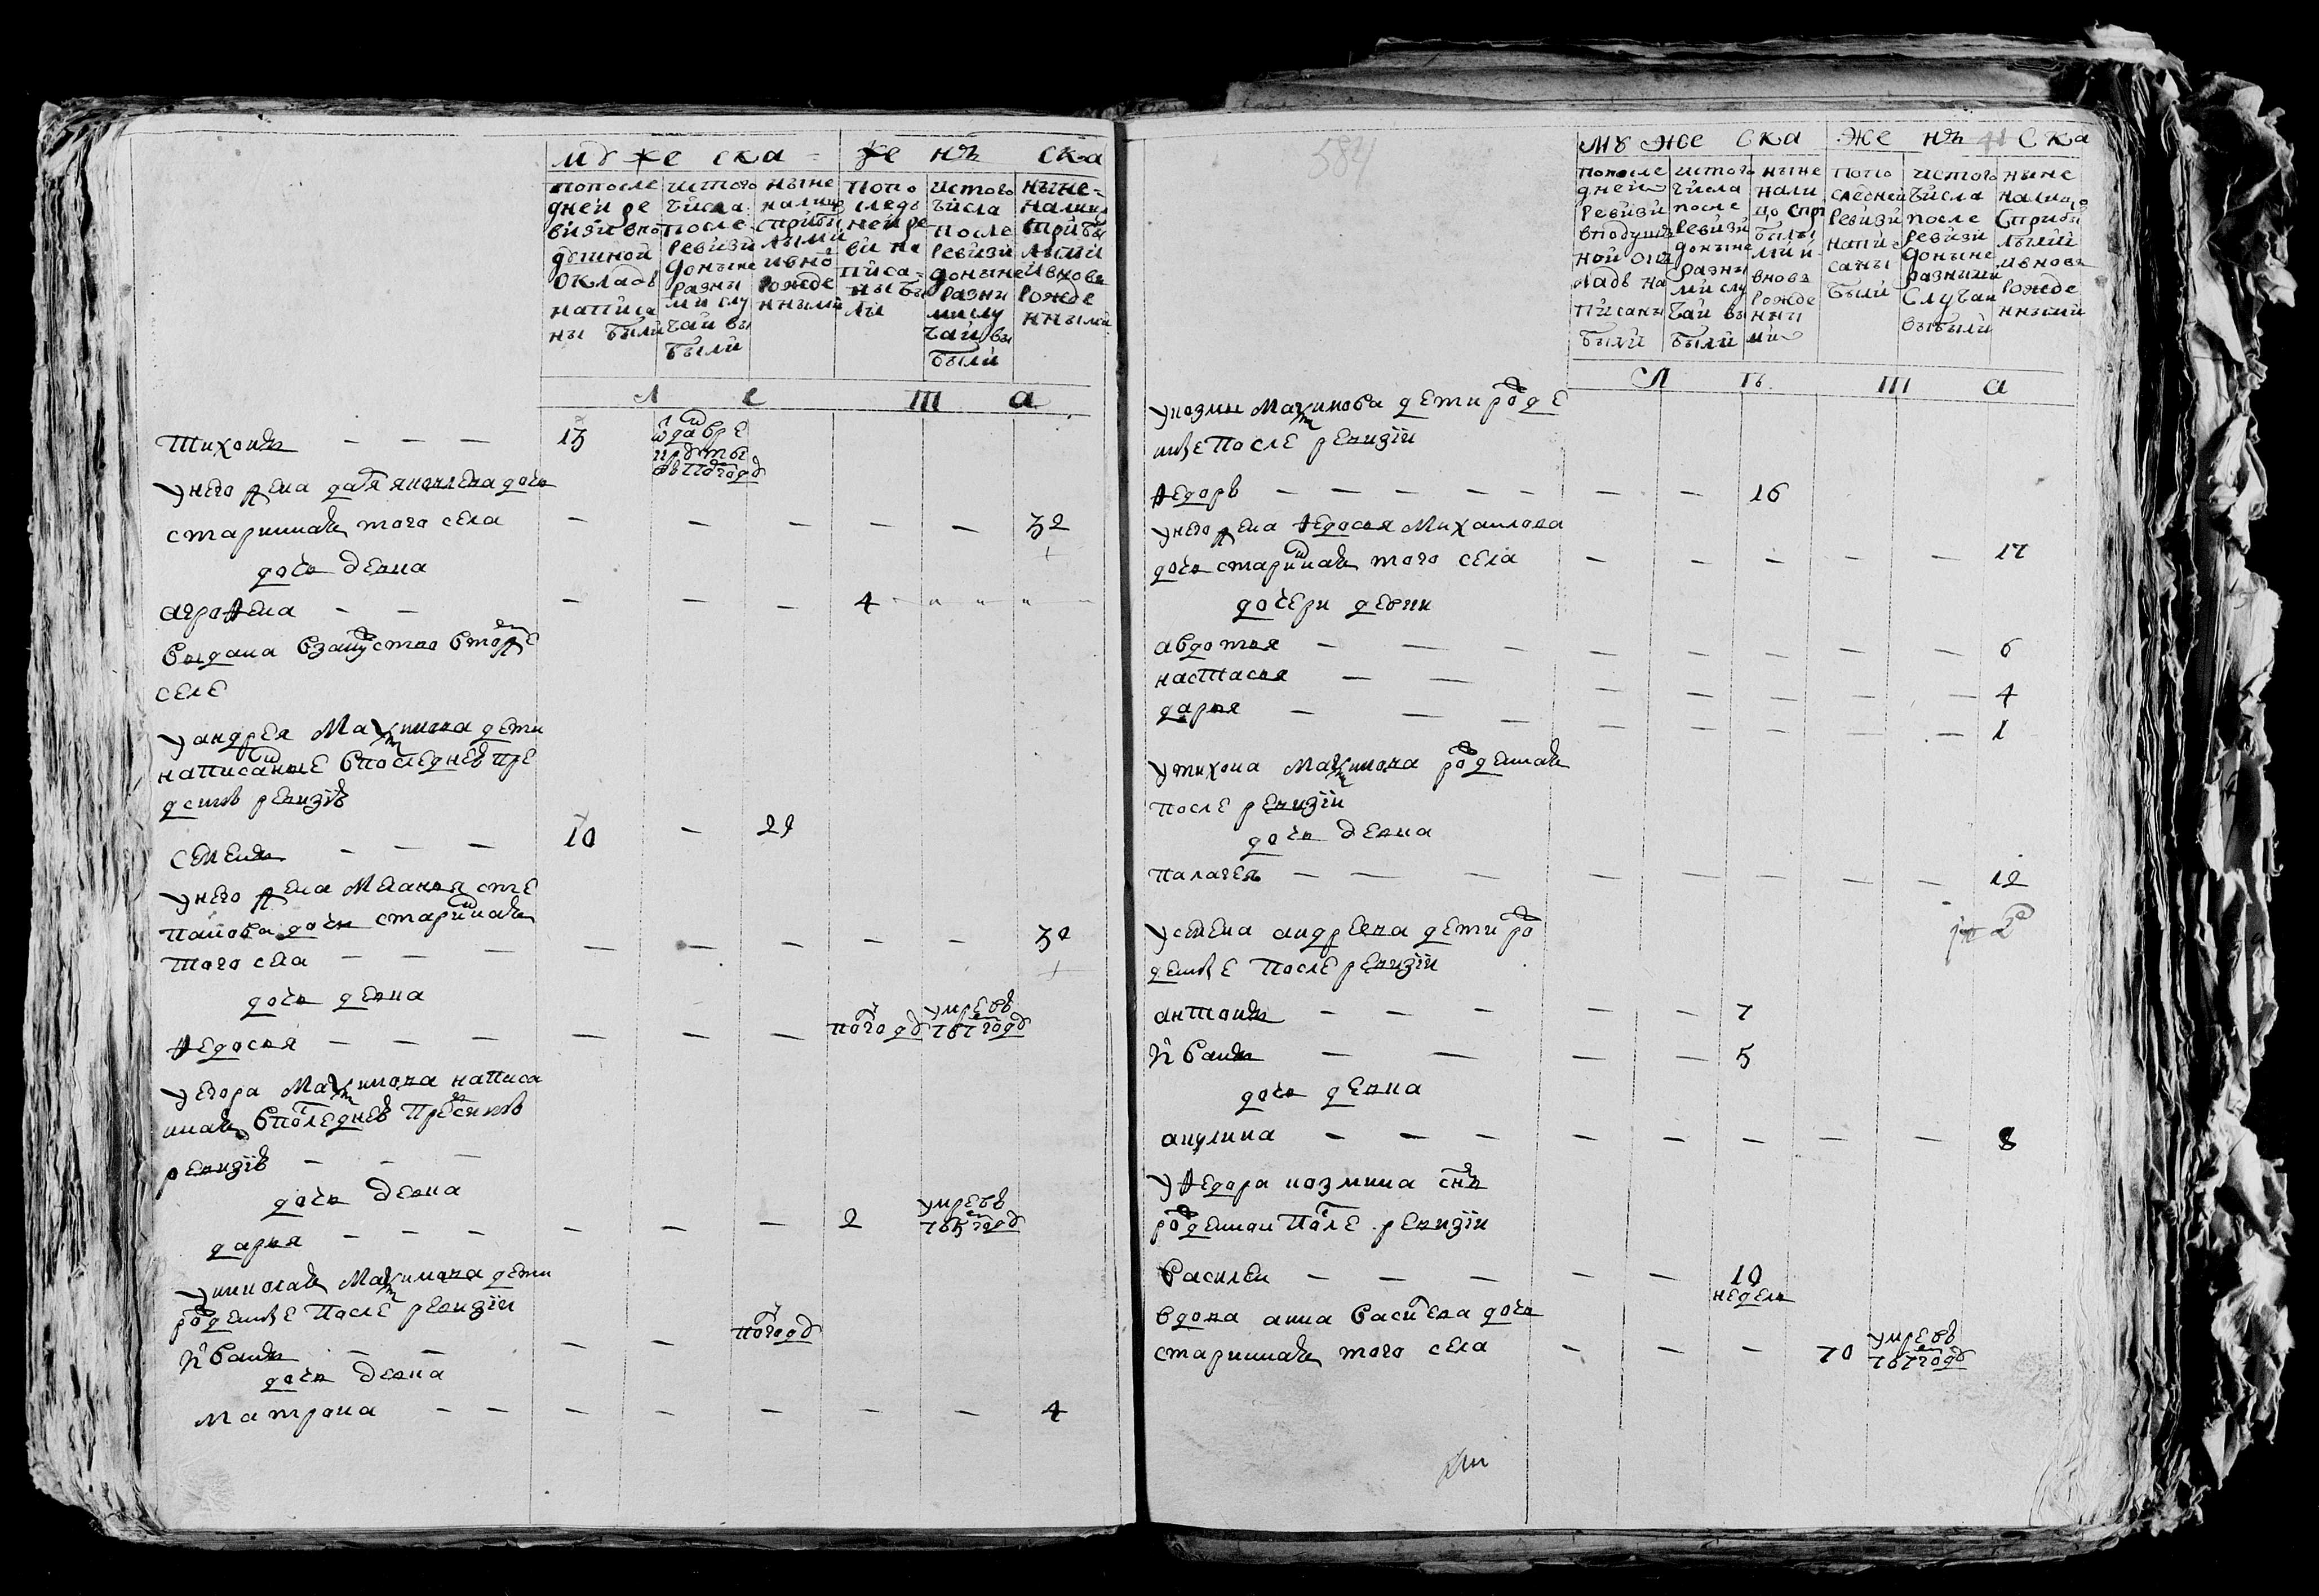 584
мꙋ же ска
же нъ ска
попосле дней ре визи впо дꙋшной окладъ написа ны были
истого числа после ревизи доныне разны ми слꙋ чаи вы были
ныне налицо сприбы лыми ивно рожде нными
попо следъ ней ре ви на писа ны бы лы
истого числа после ревизи доныне разни мислꙋ чаи вы были
ныне налицо сприбы лыми ивновь рожде нными
Л е т а
Тихонъ — — — 13
ѿдавре крꙋты
Ꙋнего жена дочь
стариннаѧ того села — — — — — 32
дочь девка
агрофена — — — — — 4
выдана взамꙋство втомже
селе
Ꙋандрея Максимова дети
написанные впоследней пре
дсимъ ревизїи
семенъ — — — 10 — 29
Ꙋнего жена Меланья сте
панова дочь стариннаѧ
того села — — — — — — — — 30
дочь девка
федосья — — — — — — полгодꙋ ꙋмре въ 767 годꙋ
Ꙋегора Максимова написа
ннаѧ впоследней пре симъ
ревизїи — — —
дочь девка
дарья — — — — — — 2 ꙋмре въ 765 годꙋ
Ꙋниколаѧ Максимова дети
рожденные после ревизїи
Иванъ — — — — полгодꙋ
дочь девка
матрона — — — — — — — 4
мꙋ же ска
же нъ ска
попосле дней ревизи вподꙋшъ ной ок ладъ на писаны были
истого числа после ревизи доныне разны ми слꙋ чаи вы были
ныне нали цо спри былы ми и вновь рожде нны ми
попо следней ревизи напи саны были
истого числа после ревизи доныне разними слꙋчаи выбыли
ныне налицо сприбы лыми ивновь рожде нными
Л ѣ т а
Ꙋкозмы Максимова дети рожде
нные после ревизїи
федоръ — — — — — — — 16
Ꙋнего жена федосья Михаилова
дочь стариннаѧ того села — — — — — 17
дочери девки
авдотья — — — — — — — — 6
настасья — — — — — — — 4
дарья — — — — — — — — 1
Ꙋтихона Максимова рожденнаѧ
после ревизїи
дочь девка
палагея — — — — — — — — 12
Ꙋсемена андреева дети ро
жденные после ревизїи
антонъ — — — — — 7
Иванъ — — — — 5
дочь девка
акулина — — — — — — — — 8
Ꙋфедора козмина снъ
рожденной после ревизїи
василеи — — — — — 10 недель
вдова анна васильева дочь
стариннаѧ того села — — — 70 ꙋмре въ 767 годꙋ